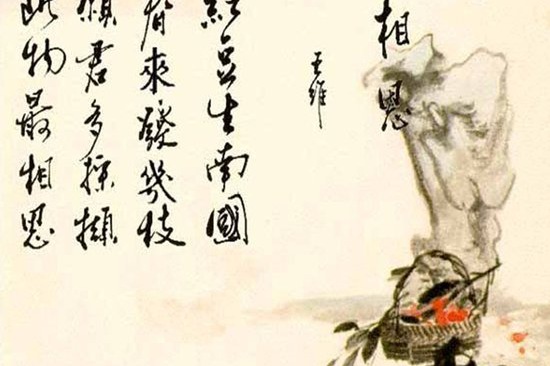 相思
王维
红豆生南國
春來發幾枝
願君多採擷
此物最相思